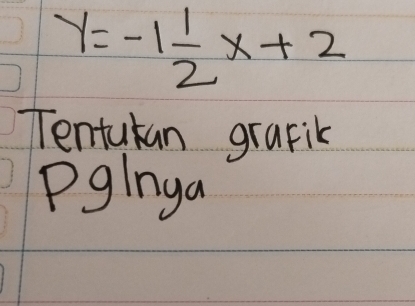 Y = -1 1/2 x + 2
Tentukan grafik
Pglnya